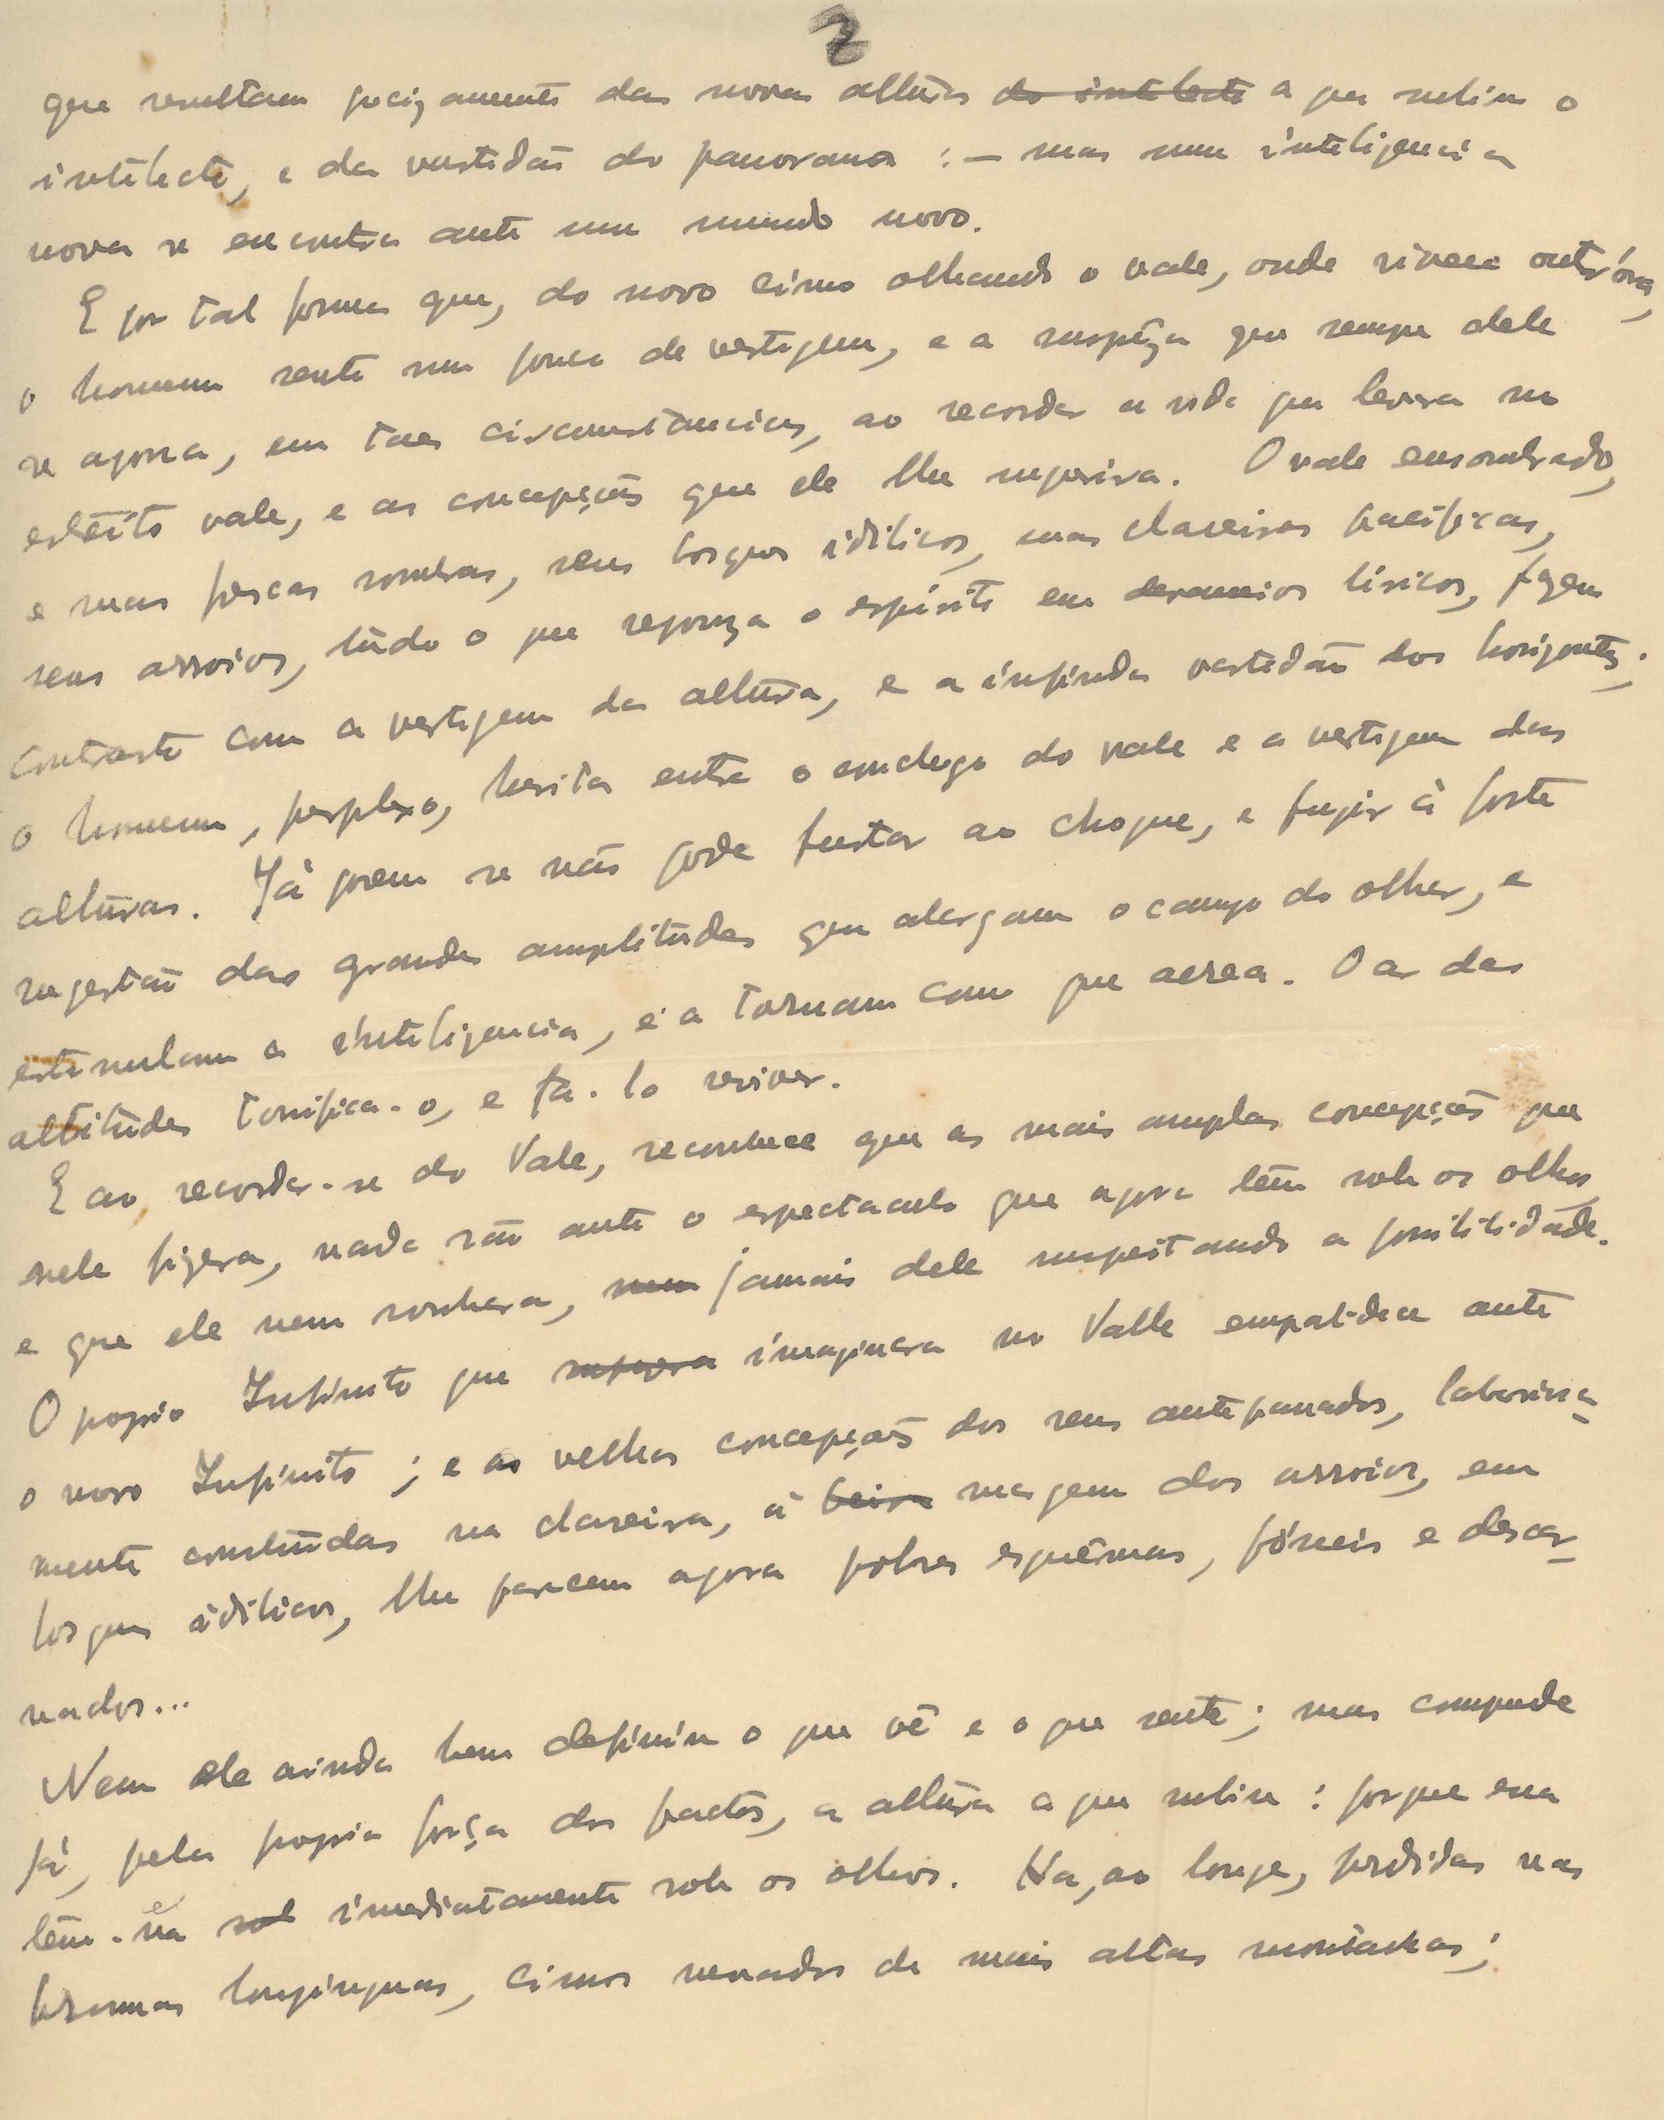 2
que resultam precizamente das novas altúras do intelecto a que subiu o
intelecto, e da vastidão do panorama : — mas uma inteligencia
nova se encontra ante um mundo novo.
E por tal forma que, do novo cimo olhando o vale, onde vivera outróra,
o homem sente um pouco de vertigem, e a surpêza que sempre dele
se apossa, em taes circumstancias, ao recordar a vida que levara no
estreito vale, e as concepções que ele lhe sugerira. O vale ensombrado,
e suas frescas sombras, seus bosques idilicos, suas clareiras pacificas,
seus arroios, túdo o que repouza o espírito em devaneios líricos, fazem
contraste com a vertigem da altúra, e a infinda vastidão dos horizontes;
o homem, perplexo, hesita entre o conchego do vale e a vertigem das
altúras. Já porem se não pode furtar ao choque, e fugir à forte
sugestão das grandes amplitúdes que alargam o campo do olhar, e
estimulam a inteligencia, e a tornam como que aerea. O ar das
altitúdes tonifica-o, e fá-lo reviver.
E ao recordar-se do Vale, reconhece que as mais amplas concepções que
nele fizera, nada são ante o espectaculo que agora têm sob os olhos,
e que ele nem sonhara, nem jamais dele suspeitando a possibilidade.
O proprio Infinito que supuzera imaginara no Valle empalidece ante
o novo Infinito ; e as velhas concepções dos seus antepassados, laboriosa-
mente construidas na clareira, á beira margem dos arroios, em
bosques idilicos, lhe parecem agora pobres esquêmas, fósseis e descar-
nados...
Nem ele ainda bem definiu o que vê e o que sente; mas compreende
já, pela propria força dos factos, a altúra a que subiu : porque essa
têm-na sob imediatamente sob os olhos. Ha, ao longe, perdidas nas
brumas longinquas, cimos nevados de mais altas montanhas;